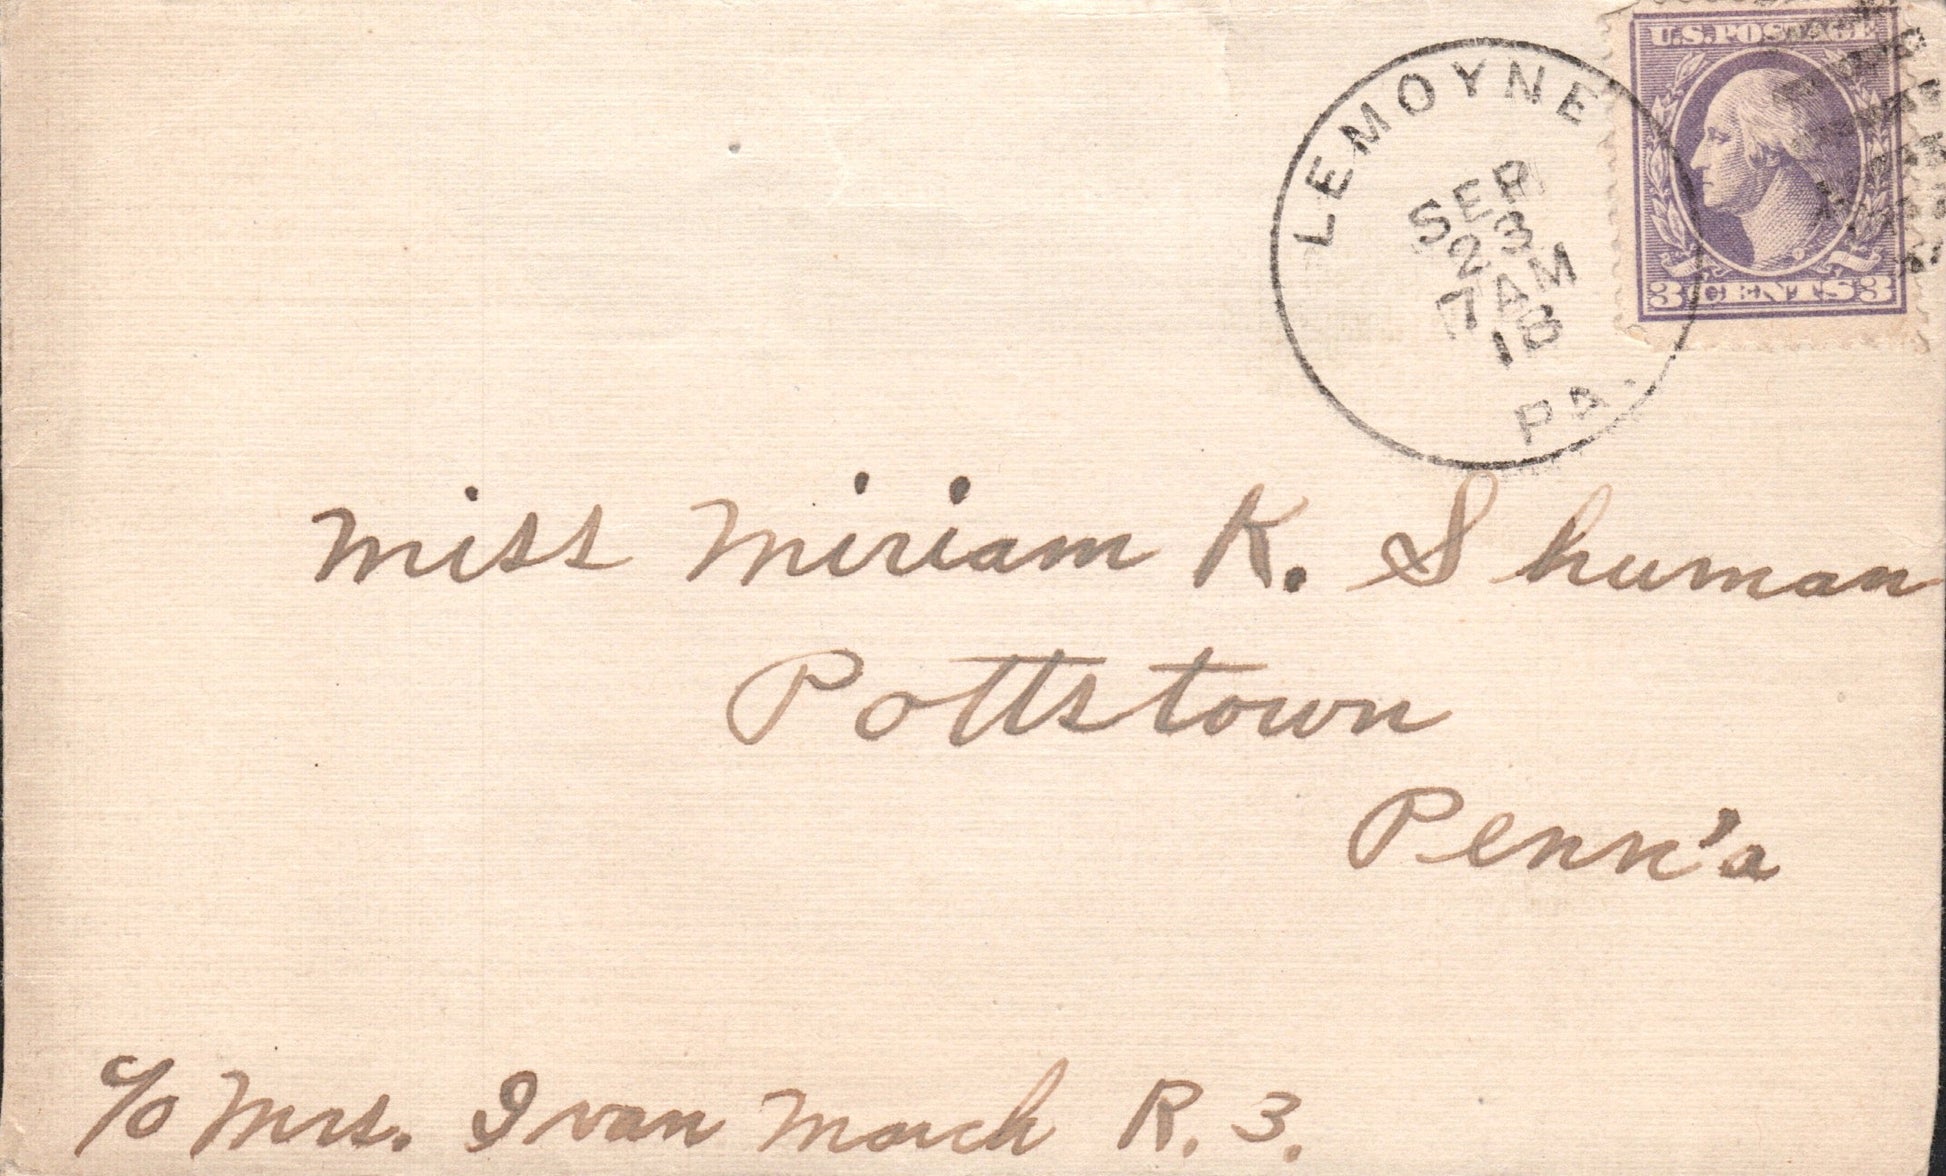 U.S. POSTAGE
LEMOYNE
SEP
23
7 AM
18
PA.
3 CENTS 3
Miss Miriam K. Shuman
Pottstown
Penn'a
c/o Mrs. Ivan March R. 3.